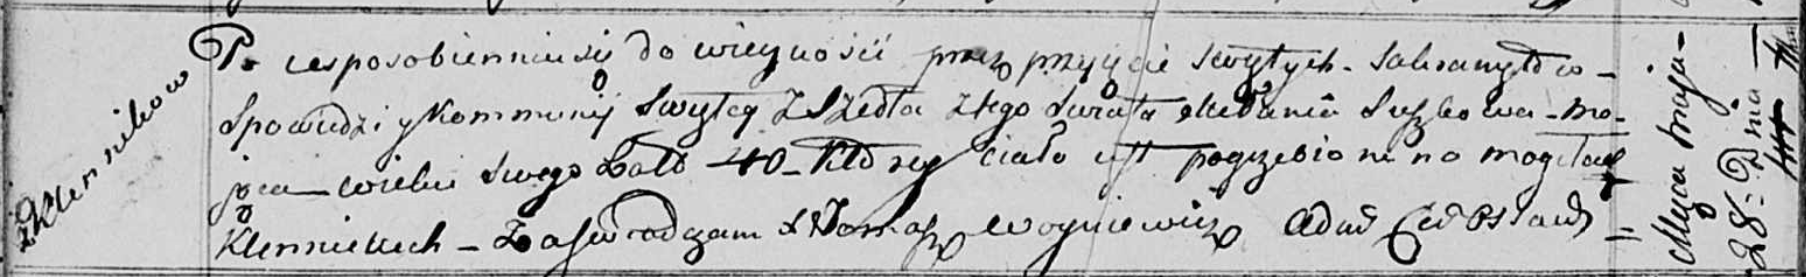 z Klennikow
Po usposobienniu się do wiecznosci przez przyięcie swiętych Sakramętow
Spowiedzi y Kommunij Swiętey Zszedła z tego Swiata Suszkowa ma-
jąca wieku swego Lató 40 – Ktorey ciało iest pogrzebione na mogiłach
Klennickich – Zaswiadczam X Tomasz Woyniewicz
Mca Maja
28 Dnia